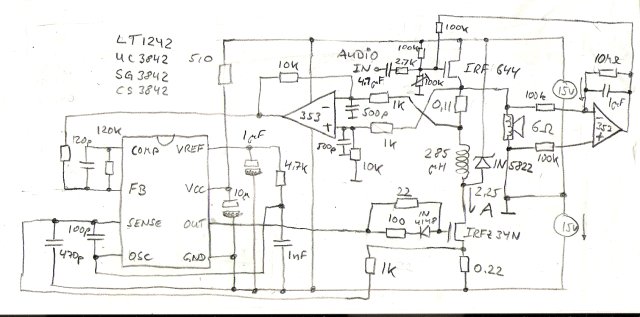 LT1242
UC3842
SG3842
CS3842
510
AUDIO
IN
4.7µF
2.7K
100k
100k
100k
IRF 644
10K
353
-
+
500p
500p
1K
1K
10K
0,11
285
µH
1N
5822
2,25
A
100k
100k
6Ω
15V
15V
1µF
352
120p
120K
COMP
VREF
FB
VCC
SENSE
OUT
OSC
GND
1µF
4.7K
10µ
100p
470p
1nF
22
100
1N
4148
IRFZ34N
1K
0.22